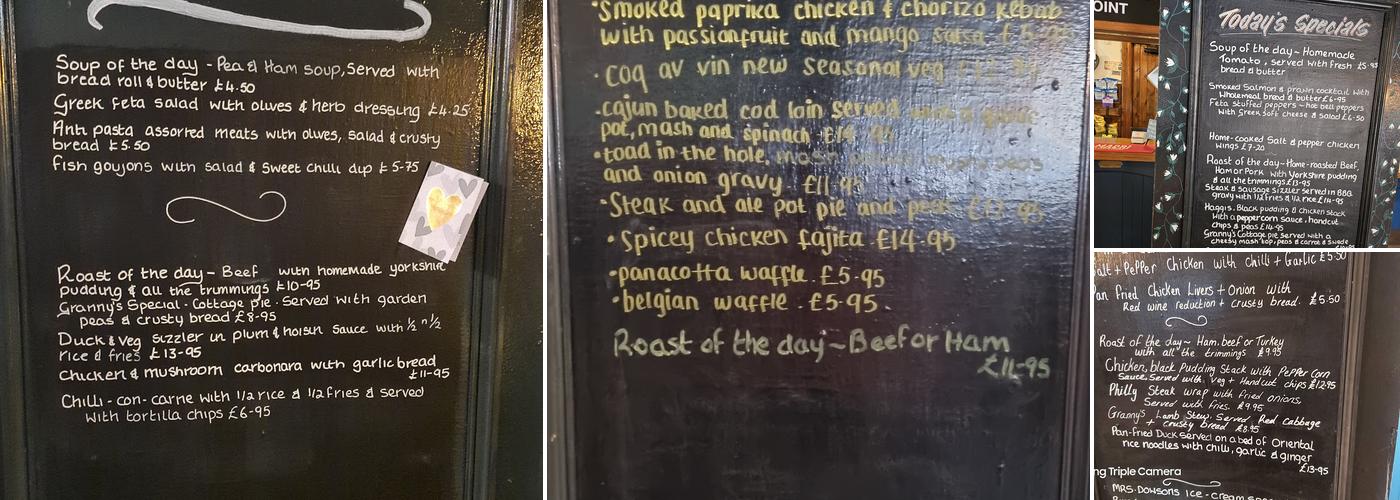 Soup of the day - Pea & Ham soup, Served with
bread roll & butter £4.50
Greek feta salad with olives & herb dressing £4.25
Anti pasta assorted meats with olives, salad & crusty
bread £5.50
Fish goujons with salad & sweet chilli dip £5-75
Roast of the day - Beef with homemade yorkshire
pudding & all the trimmings £10-95
Granny's Special - Cottage pie - Served with garden
peas & crusty bread £8-95
Duck & Veg sizzler in plum & hoisin sauce with ½ n ½
rice & fries £13-95
Chicken & mushroom carbonara with garlic bread
£11-95
Chilli - con - carne with 1/2 rice & 1/2 fries & served
with tortilla chips £6-95
•Smoked paprika chicken & chorizo kebab
with passionfruit and mango salsa
•coq av vin new seasonal veg
•cajun baked cod loin served
pot, mash and spinach £14.95
•toad in the hole,
and onion gravy £11.95
•Steak and ale pot pie and peas
•Spicey chicken fajita £14.95
•panacotta waffle £5.95
•belgian waffle £5.95.
Roast of the day ~ Beef or Ham
£11-95
OINT
Today's Specials
Soup of the day ~ Homemade
Tomato, served with fresh £5.95
bread & butter
Smoked Salmon & prawn cocktail with
Wholemeal bread & butter £6-95
Feta stuffed peppers ~ hot bell peppers
with Greek soft cheese & salad £6-50
Home-cooked Salt & pepper chicken
wings £7-20
Roast of the day ~ Home-roasted Beef
Ham or Pork with Yorkshire pudding
& all the trimmings £13-95
Steak & Sausage sizzler served in BBQ
gravy with 1/2 fries & 1/2 rice £14-95
Haggis, Black pudding & chicken stack
with a peppercorn sauce, handcut
chips & peas £14-95
Granny's Cottage pie served with a
cheesy mash top, peas, carrot & swede
Salt + Pepper Chicken with Chilli + Garlic £5.50
Pan Fried Chicken Livers + Onion with
Red wine reduction + crusty bread. £5.50
Roast of the day ~ Ham. beef or Turkey
with all the trimmings £9.95
Chicken, black Pudding Stack with Pepper corn
Sauce, Served with Veg + Handcut chips £12.95
Philly Steak wrap with fried onions,
Served with fries. £9.95
Granny's Lamb Stew. Served Red Cabbage
+ crusty bread £8.95
Pan-Fried Duck served on a bed of Oriental
rice noodles with chilli, garlic & ginger
£13-95
ng Triple Camera
MRS. DOWSONS ICE - Cream